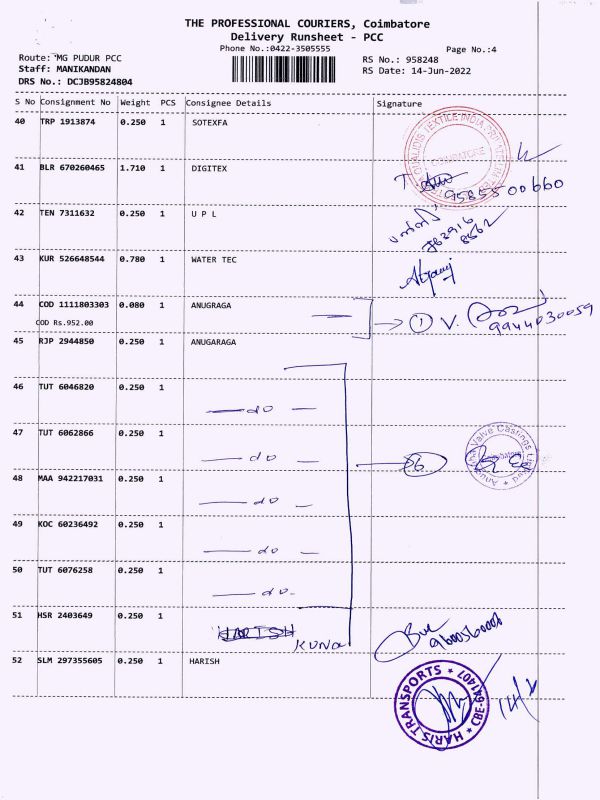 THE PROFESSIONAL COURIERS, Coimbatore
Delivery Runsheet - PCC
Phone No.:0422-3505555
Page No.:4
Route: MG PUDUR PCC
RS No.: 958248
Staff: MANIKANDAN
RS Date: 14-Jun-2022
DRS No.: DCJB95824804
S No Consignment No Weight PCS Consignee Details Signature
40 TRP 1913874 0.250 1 SOTEXFA
41 BLR 670260465 1.710 1 DIGITEX
9585500660
42 TEN 7311632 0.250 1 U P L
43 KUR 526648544 0.780 1 WATER TEC
44 COD 1111803303 0.080 1 ANUGRAGA
COD Rs.952.00
1 V.
9944030059
45 RJP 2944850 0.250 1 ANUGARAGA
46 TUT 6046820 0.250 1 do
47 TUT 6062866 0.250 1 do
06
Valve Castings Limited
48 MAA 942217031 0.250 1 do
49 KOC 60236492 0.250 1 do
50 TUT 6076258 0.250 1 do
51 HSR 2403649 0.250 1 HARISH
KUNA
52 SLM 297355605 0.250 1 HARISH
HARIS TRANSPORTS * CBE-641407 *